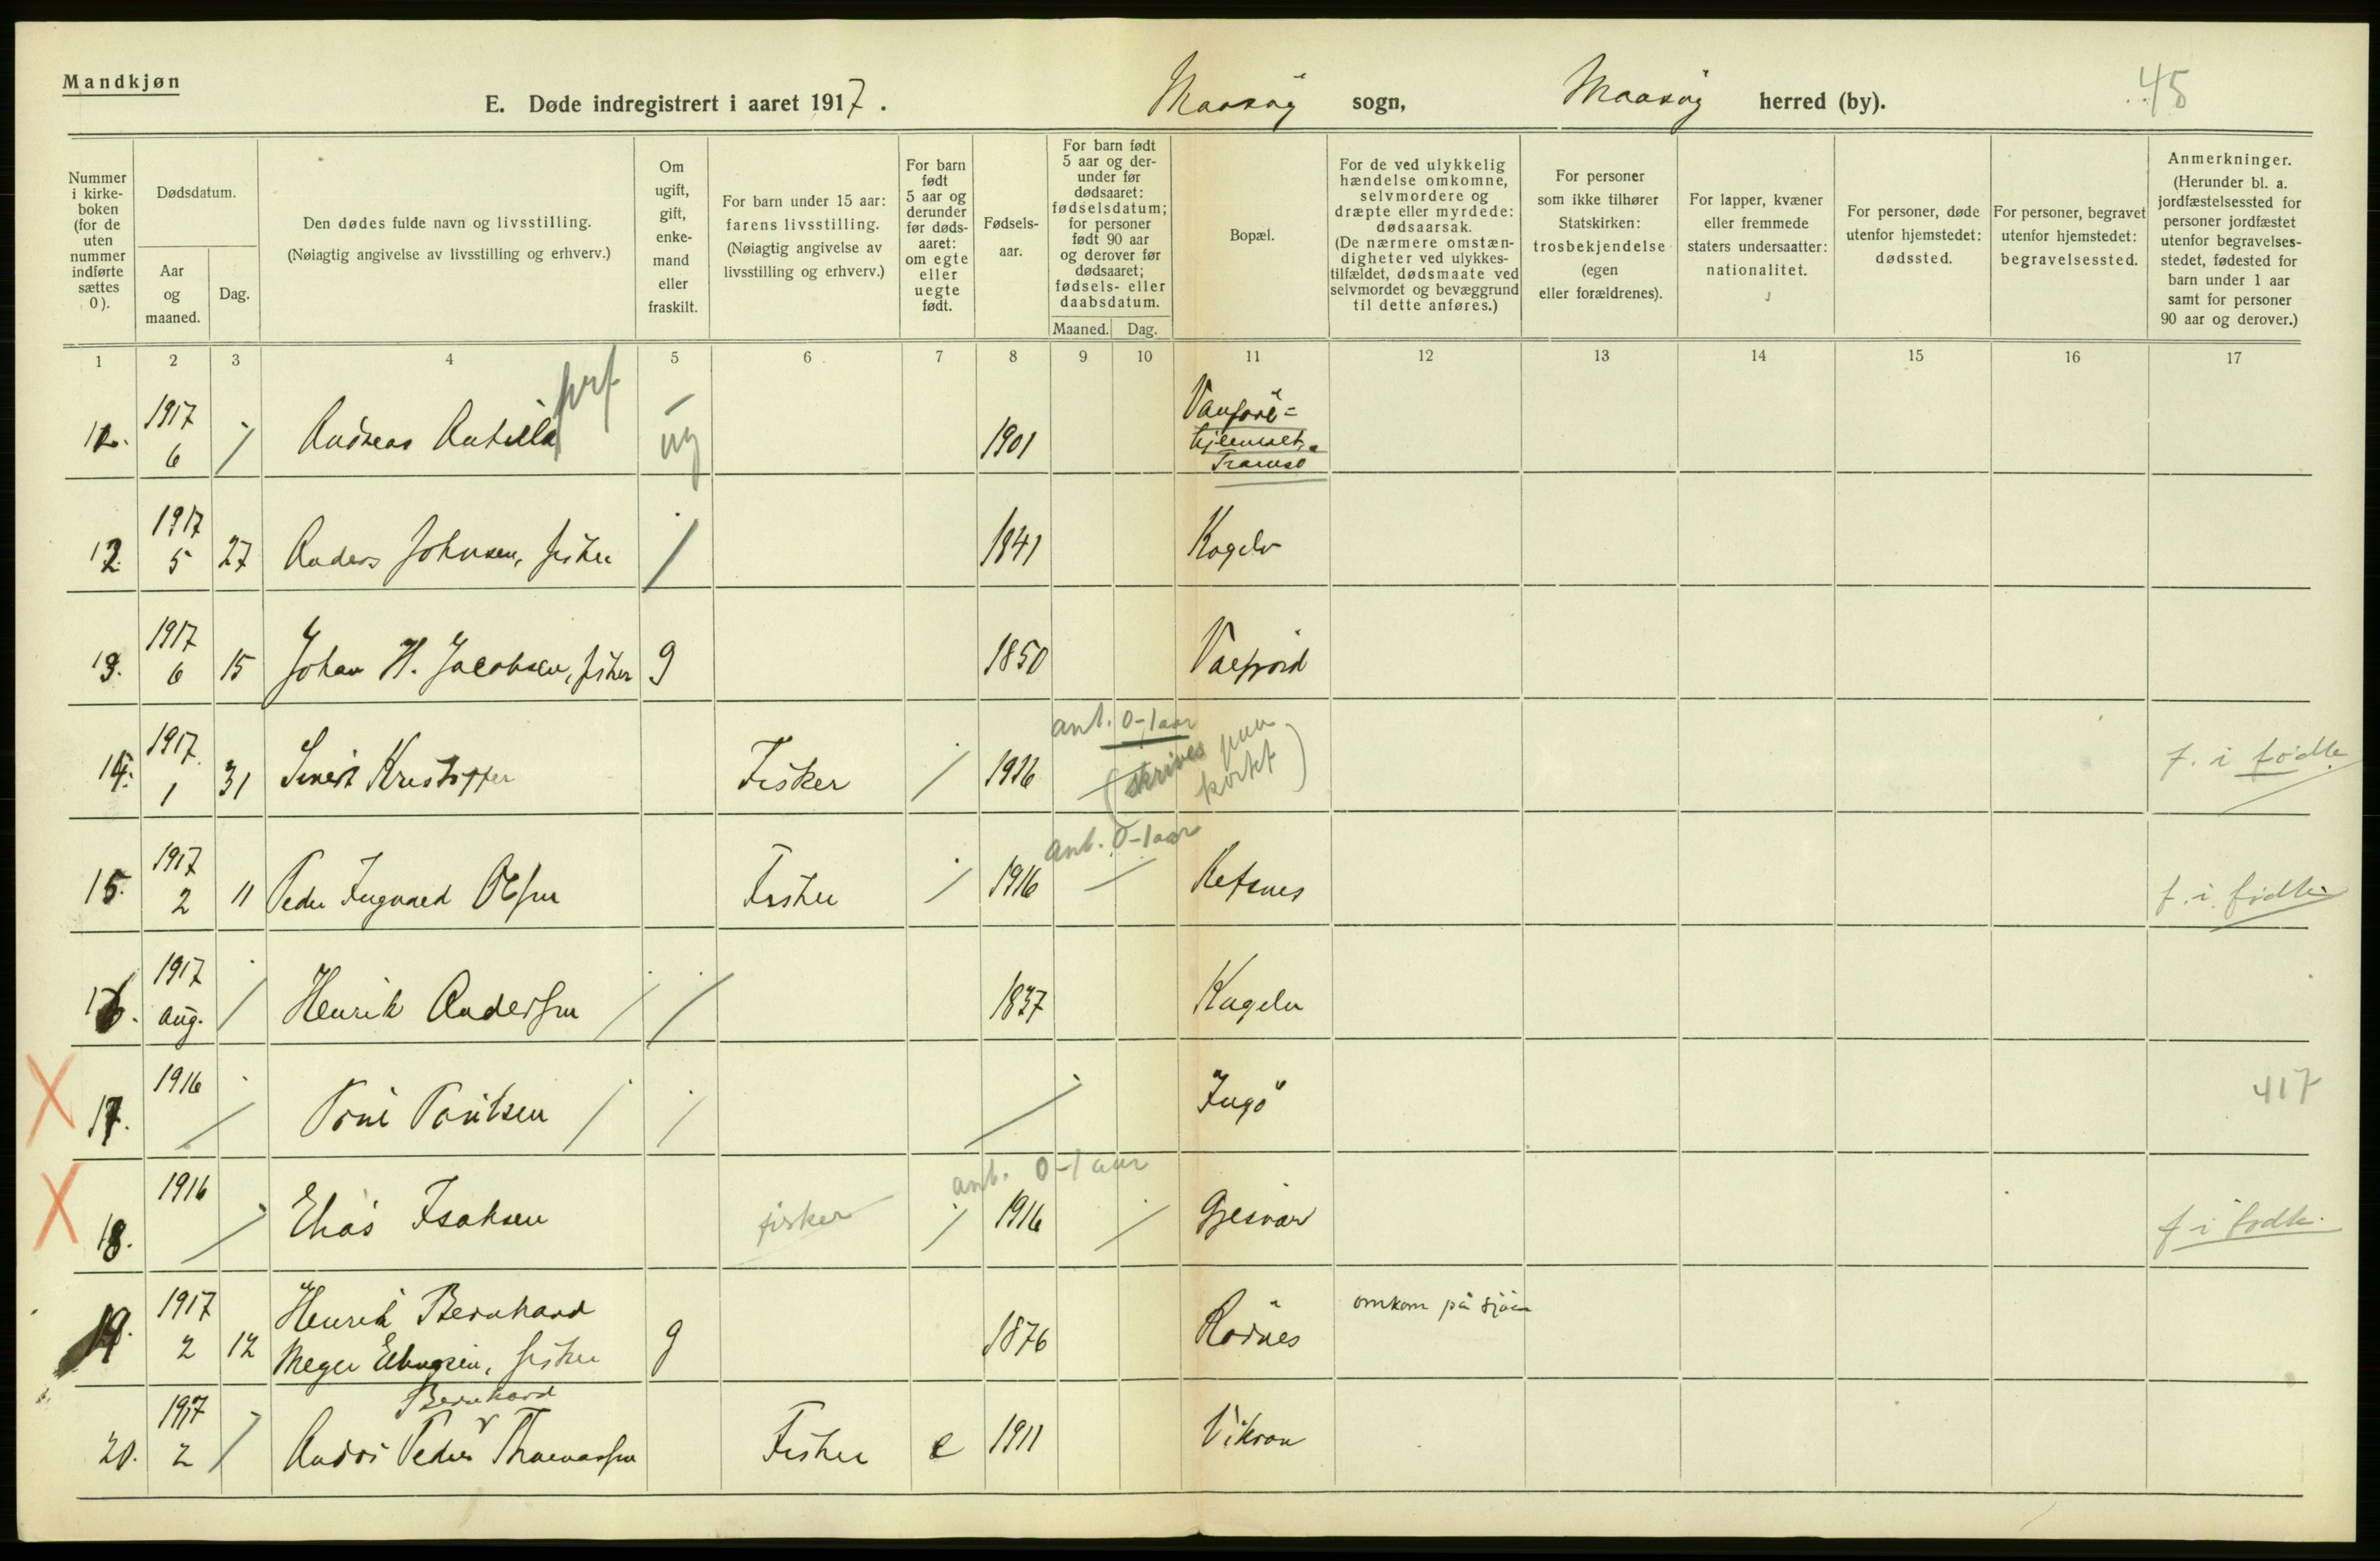 Mandkjøn
E. Døde indregistrert i aaret 1917. Maasøy sogn, Maasøy herred (by). 45
Nummer i kirke-boken (for de uten nummer indførte sættes 0).
Dødsdatum.
Aar og maaned.
Dag.
Den dødes fulde navn og livsstilling.
(Nøiagtig angivelse av livsstilling og erhverv.)
Om ugift, gift, enke-mand eller fraskilt.
For barn under 15 aar: farens livsstilling.
(Nøiagtig angivelse av livsstilling og erhverv.)
For barn født 5 aar og derunder før døds-aaret: om egte eller uegte født.
Fødsels-aar.
For barn født 5 aar og der-under før dødsaaret: fødselsdatum; for personer født 90 aar og derover før dødsaaret; fødsels- eller daabsdatum.
Maaned. Dag.
Bopæl.
For de ved ulykkelig hændelse omkomne, selvmordere og dræpte eller myrdede: dødsaarsak.
(De nærmere omstæn-digheter ved ulykkes-tilfældet, dødsmaate ved selvmordet og bevæggrund til dette anføres.)
For personer som ikke tilhører Statskirken: trosbekjendelse (egen eller forældrenes).
For lapper, kvæner eller fremmede staters undersaatter: nationalitet.
For personer, døde utenfor hjemstedet: dødssted.
For personer, begravet utenfor hjemstedet: begravelsessted.
Anmerkninger.
(Herunder bl. a. jordfæstelsessted for personer jordfæstet utenfor begravelses-stedet, fødested for barn under 1 aar samt for personer 90 aar og derover.)
1 2 3 4 5 6 7 8 9 10 11 12 13 14 15 16 17
1917 6 / Andreas ug 1901 Tromsø
12. 1917 5 27 Anders Johnsen, fisker / 1841
13. 1917 6 15 Johan H. Jacobsen, fisker g 1850
ant. 0-1 aar
14. 1917 1 31 Fisker / 1916 (skrives paa kortet) f. i fødk.
ant. 0-1 aar
15. 1917 2 11 Peder Ingvard Olsen Fisker / 1916 Refsnes f. i. fødk.
16. 1917 aug. / Henrik Andersen / / 1837
X 17. 1916 / / / Ingø 417
ant. 0-1 aar
X 18. 1916 / Elias Isaksen fisker / 1916 / Gjesvær f i fødk.
19. 1917 2 12 Henrik Bernhard
Meyer fisker g 1876 omkom på sjøen
Bernhard
20. 1917 2 / Peder Thomassen Fisker e 1911 Vikran